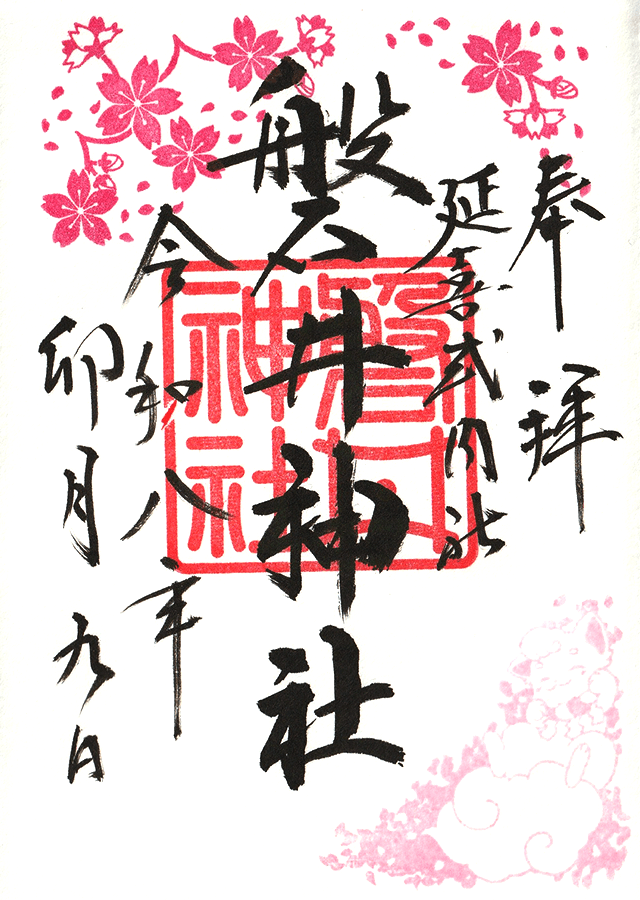 奉拝
延喜式内社
磐井神社
磐井神社
令和八年
卯月九日